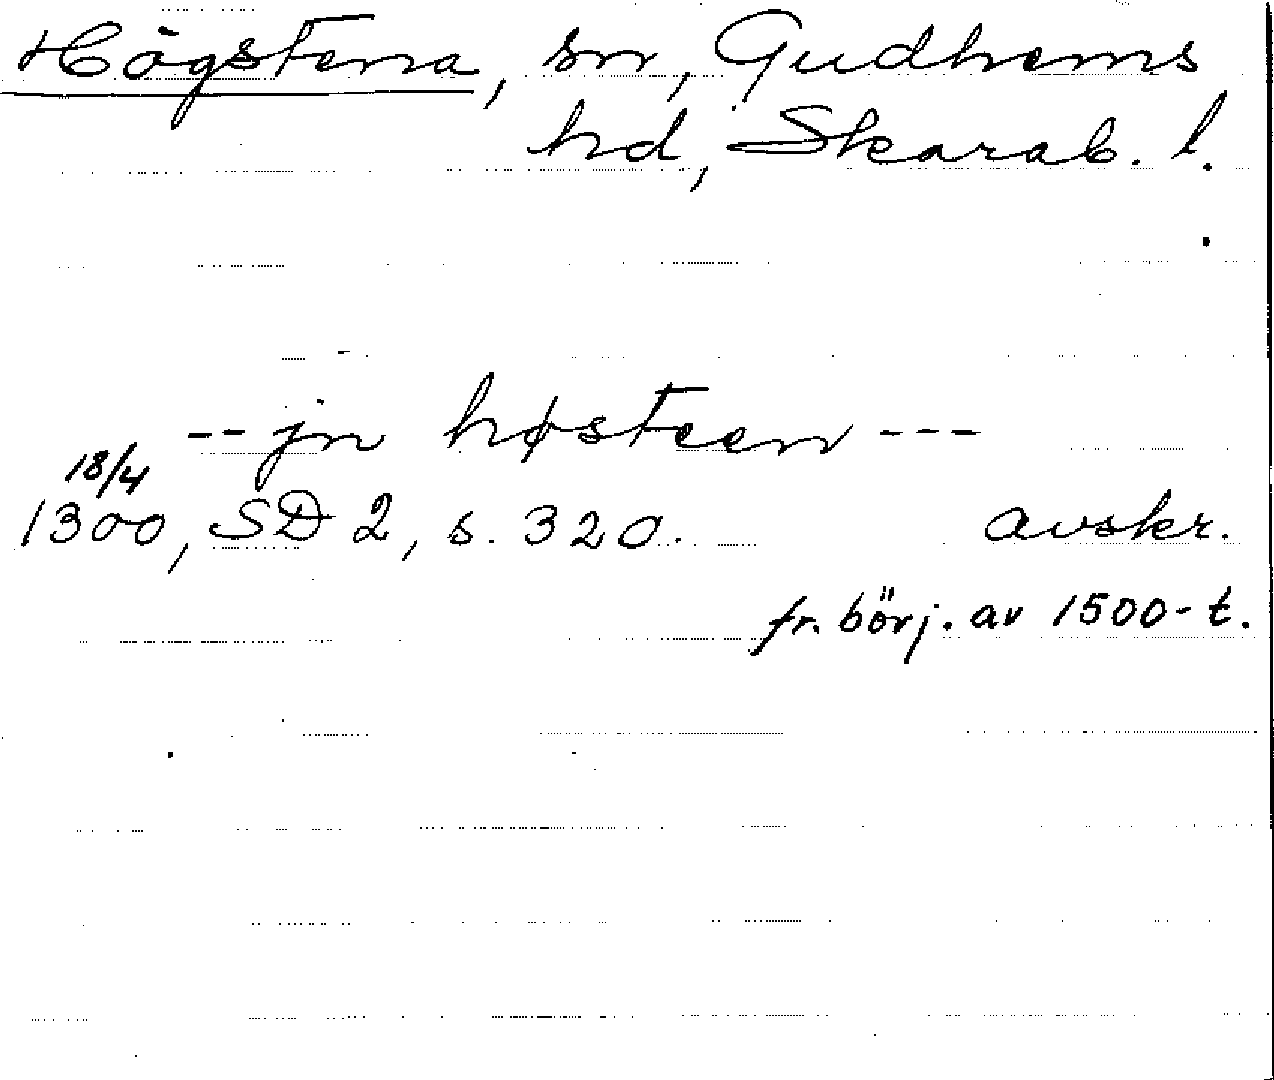 Högstena, sn, Gudhems
hd, Skarab. l.
-- jn høsteen ---
18/4
1300, SD 2, s. 320. avskr.
fr. börj. av 1500-t.